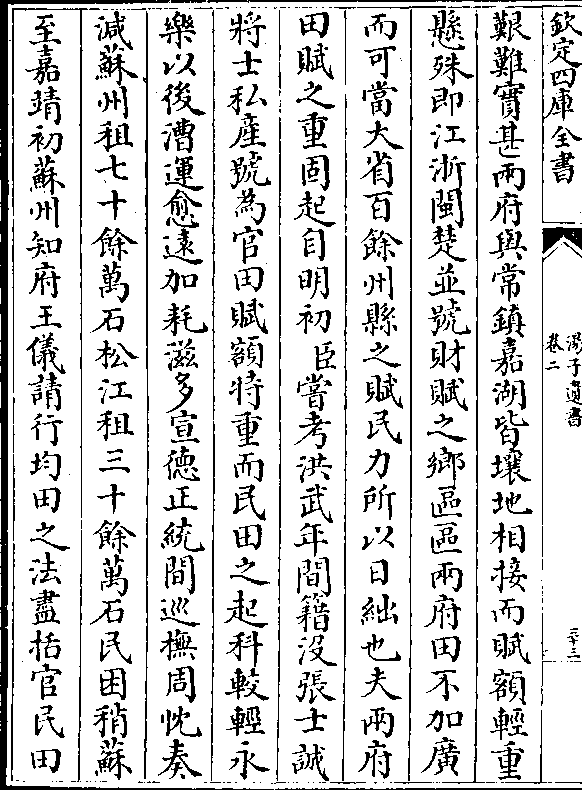 欽定四庫全書
湯子遺書
卷二
二十三
艱難實甚兩府與常鎮嘉湖皆壤地相接而賦額輕重
懸殊即江浙閩楚並號財賦之鄉區區兩府田不加廣
而可當大省百餘州縣之賦民力所以日絀也夫兩府
田賦之重固起自明初臣嘗考洪武年間籍沒張士誠
將士私產號為官田賦額特重而民田之起科較輕永
樂以後漕運愈遠加耗滋多宣德正統間巡撫周忱奏
減蘇州租七十餘萬石松江租三十餘萬石民困稍蘇
至嘉靖初蘇州知府王儀請行均田之法盡括官民田